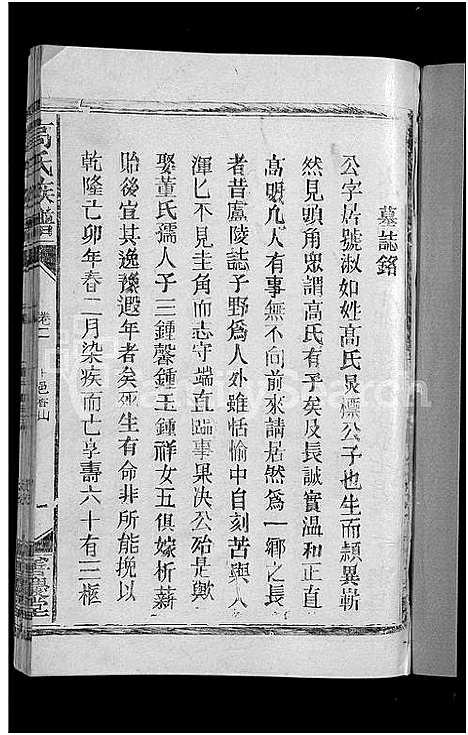 墓誌銘
公字居號淑如姓高氏炅標公子也生而頴異嶄
然見頭角眾謂高氏有子矣及長誠實温和正直
高明凡人有事無不向前來請居然為一鄉之長
者昔盧陵誌子野為人外雖恬愉中自刻苦與人
渾匕不見圭角而志守端直臨事果决公殆是歟
娶董氏孺人子三鍾馨鍾玉鍾祥女五俱嫁析薪
貽後宜其逸豫遐年者矣死生有命非所能挽以
乾隆乙卯年春二月染疾而亡享壽六十有三柩
高氏族譜
卷二
一